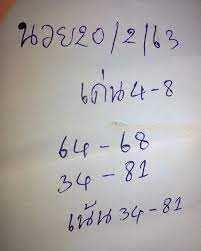 นวย20/2/63
เด่น4-8
64-68
34-81
เน้น34-81